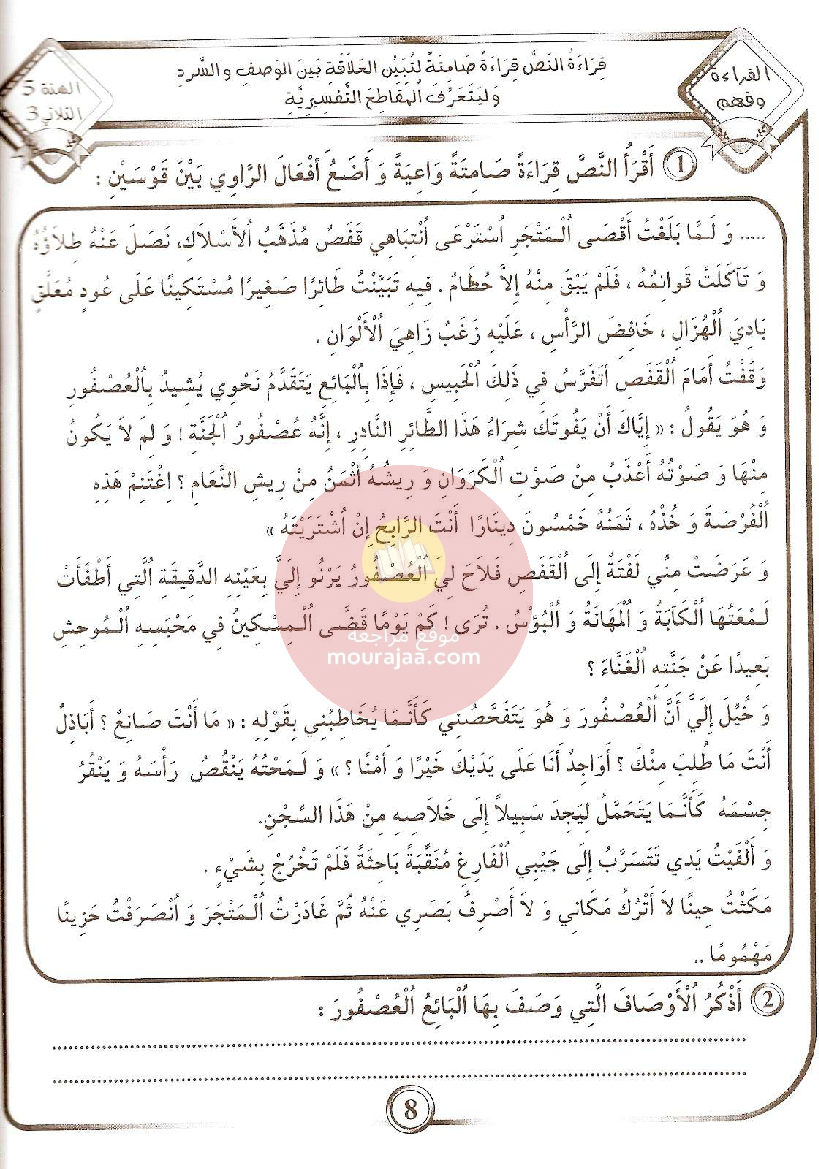 القراءة
وفهم
قِرَاءَةُ النَصِّ قِرَاءَةً صَامِتَةً لِتُبَيِّنَ العَلَاقَةَ بَيْنَ الوَصْفِ و السَّردِ
وَلِيَتَعَرَّفَ المَقَاطِعَ التَّفْسِيرِيَّةِ
السنة 5
الثلاثي 3
1 أَقْرَأُ النَّصَّ قِرَاءَةً صَامِتَةً وَاعِيَةً وَ أَضَعُ أَفْعَالَ الرَّاوِي بَيْنَ قَوْسَيْنِ :
..... وَ لَمَّا بَلَغْتُ أَقْصَى الْمَتْجَرِ اسْتَرْعَى اُنْتِبَاهِي قَفَصٌ مُذَهَّبُ الُأَسْلاَكِ، نَصَلَ عَنْهُ طِلاَؤُهُ
وَ تَآكَلَتْ قَوائِمُهُ ، فَلَمْ يَبْقَ مِنْهُ إِلاَّ حُطَامٌ . فِيهِ تَبَيَّنْتُ طَائِرًا صَغِيرًا مُسْتَكِينًا عَلَى عُودٍ مُعَلَّقٍ
بَادِيَ اُلْهُزَالِ ، خَافِضَ الرَّأْسِ ، عَلَيْهِ زَغَبٌ زَاهِيَ اُلْأَلْوَانِ .
وَقَفْتُ أَمَامَ اُلْقَفَصِ أَتَفَرَّسُ فِي ذَلِكَ اُلْحَبِيسِ ، فَإِذَا بِاُلْبَائِعِ يَتَقَدَّمُ نَحْوِي يُشِيدُ بِاُلْعُصْفُورِ
وَ هُوَ يَقُولُ : « إِيَّاكَ أَنْ يَفُوتَكَ شِرَاءُ هَذَا الطَّائِرِ النَّادِرِ ، إِنَّهُ عُصْفُورُ اُلْجَنَّةِ ! وَ لِمَ لاَ يَكُونُ
مِنْهَا وَ صَوْتُهُ أَعْذَبُ مِنْ صَوْتِ اُلْكَرَوَانِ وَ رِيشُهُ أَثْمَنُ مِنْ رِيشِ النَّعَامِ ؟ اِغْتَنِمْ هَذِهِ
اُلْفُرْصَةَ وَ خُذْهُ ، ثَمَنُهُ خَمْسُونَ دِينَارًا أَنْتَ الرَّابِحُ إِنْ اُشْتَرَيْتَهُ »
وَ عَرَضَتْ مِنِّي لَفْتَةٌ إِلَى اُلْقَفَصِ فَلاَحَ لِيَ اُلْعُصْفُورُ يَرْنُو إِلَيَّ بِعَيْنِهِ الدَّقِيقَةِ الَّتِي أَطْفَأَتْ
لَمْعَتَهَا اُلْكَآبَةُ وَ اُلْمَهَانَةُ وَ اُلْبُؤْسُ . تُرَى ! كَمْ يَوْمًا قَضَّى اُلْمِسْكِينُ فِي مَحْبَسِهِ الْمُوحِشِ
بَعِيدًا عَنْ جَنَّتِهِ اُلْغَنَّاءَ ؟
وَ خُيِّلَ إِلَيَّ أَنَّ اُلْعُصْفُورَ وَ هُوَ يَتَفَحَّصُنِي كَأَنَّمَا يُخَاطِبُنِي بِقَوْلِهِ : « مَا أَنْتَ صَانِعٌ ؟ أَبَاذِلٌ
أَنْتَ مَا طُلِبَ مِنْكَ ؟ أَوَاجِدٌ أَنَا عَلَى يَدَيْكَ خَيْرًا وَ أَمْنًا ؟ » وَ لَمَحْتُهُ يَنْقُصُ رَأْسَهُ وَ يَنْقُرُ
جِسْمَهُ كَأَنَّمَا يَتَحَمَّلُ لِيَجِدَ سَبِيلاً إِلَى خَلاَصِهِ مِنْ هَذَا السِّجْنِ.
وَ أَلْفَيْتُ يَدِي تَتَسَرَّبُ إِلَى جَيْبِي اُلْفَارِغِ مُنَقِّبَةً بَاحِثَةً فَلَمْ تَخْرُجْ بِشَيْءٍ .
مَكَثْتُ حِينًا لاَ أَتْرُكُ مَكَانِي وَ لاَ أَصْرِفُ بَصَرِي عَنْهُ ثُمَّ غَادَرْتُ اُلْمَتْجَرَ وَ اُنْصَرَفْتُ حَزِينًا
مَهْمُومًا ..
موقع مراجعة
mourajaa.com
2 أَذْكُرُ اُلْأَوْصَافَ الَّتِي وَصَفَ بِهَا اُلْبَائِعُ اُلْعُصْفُورَ :
8